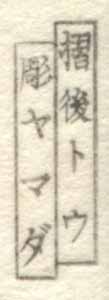 摺後トウ
彫ヤマダ